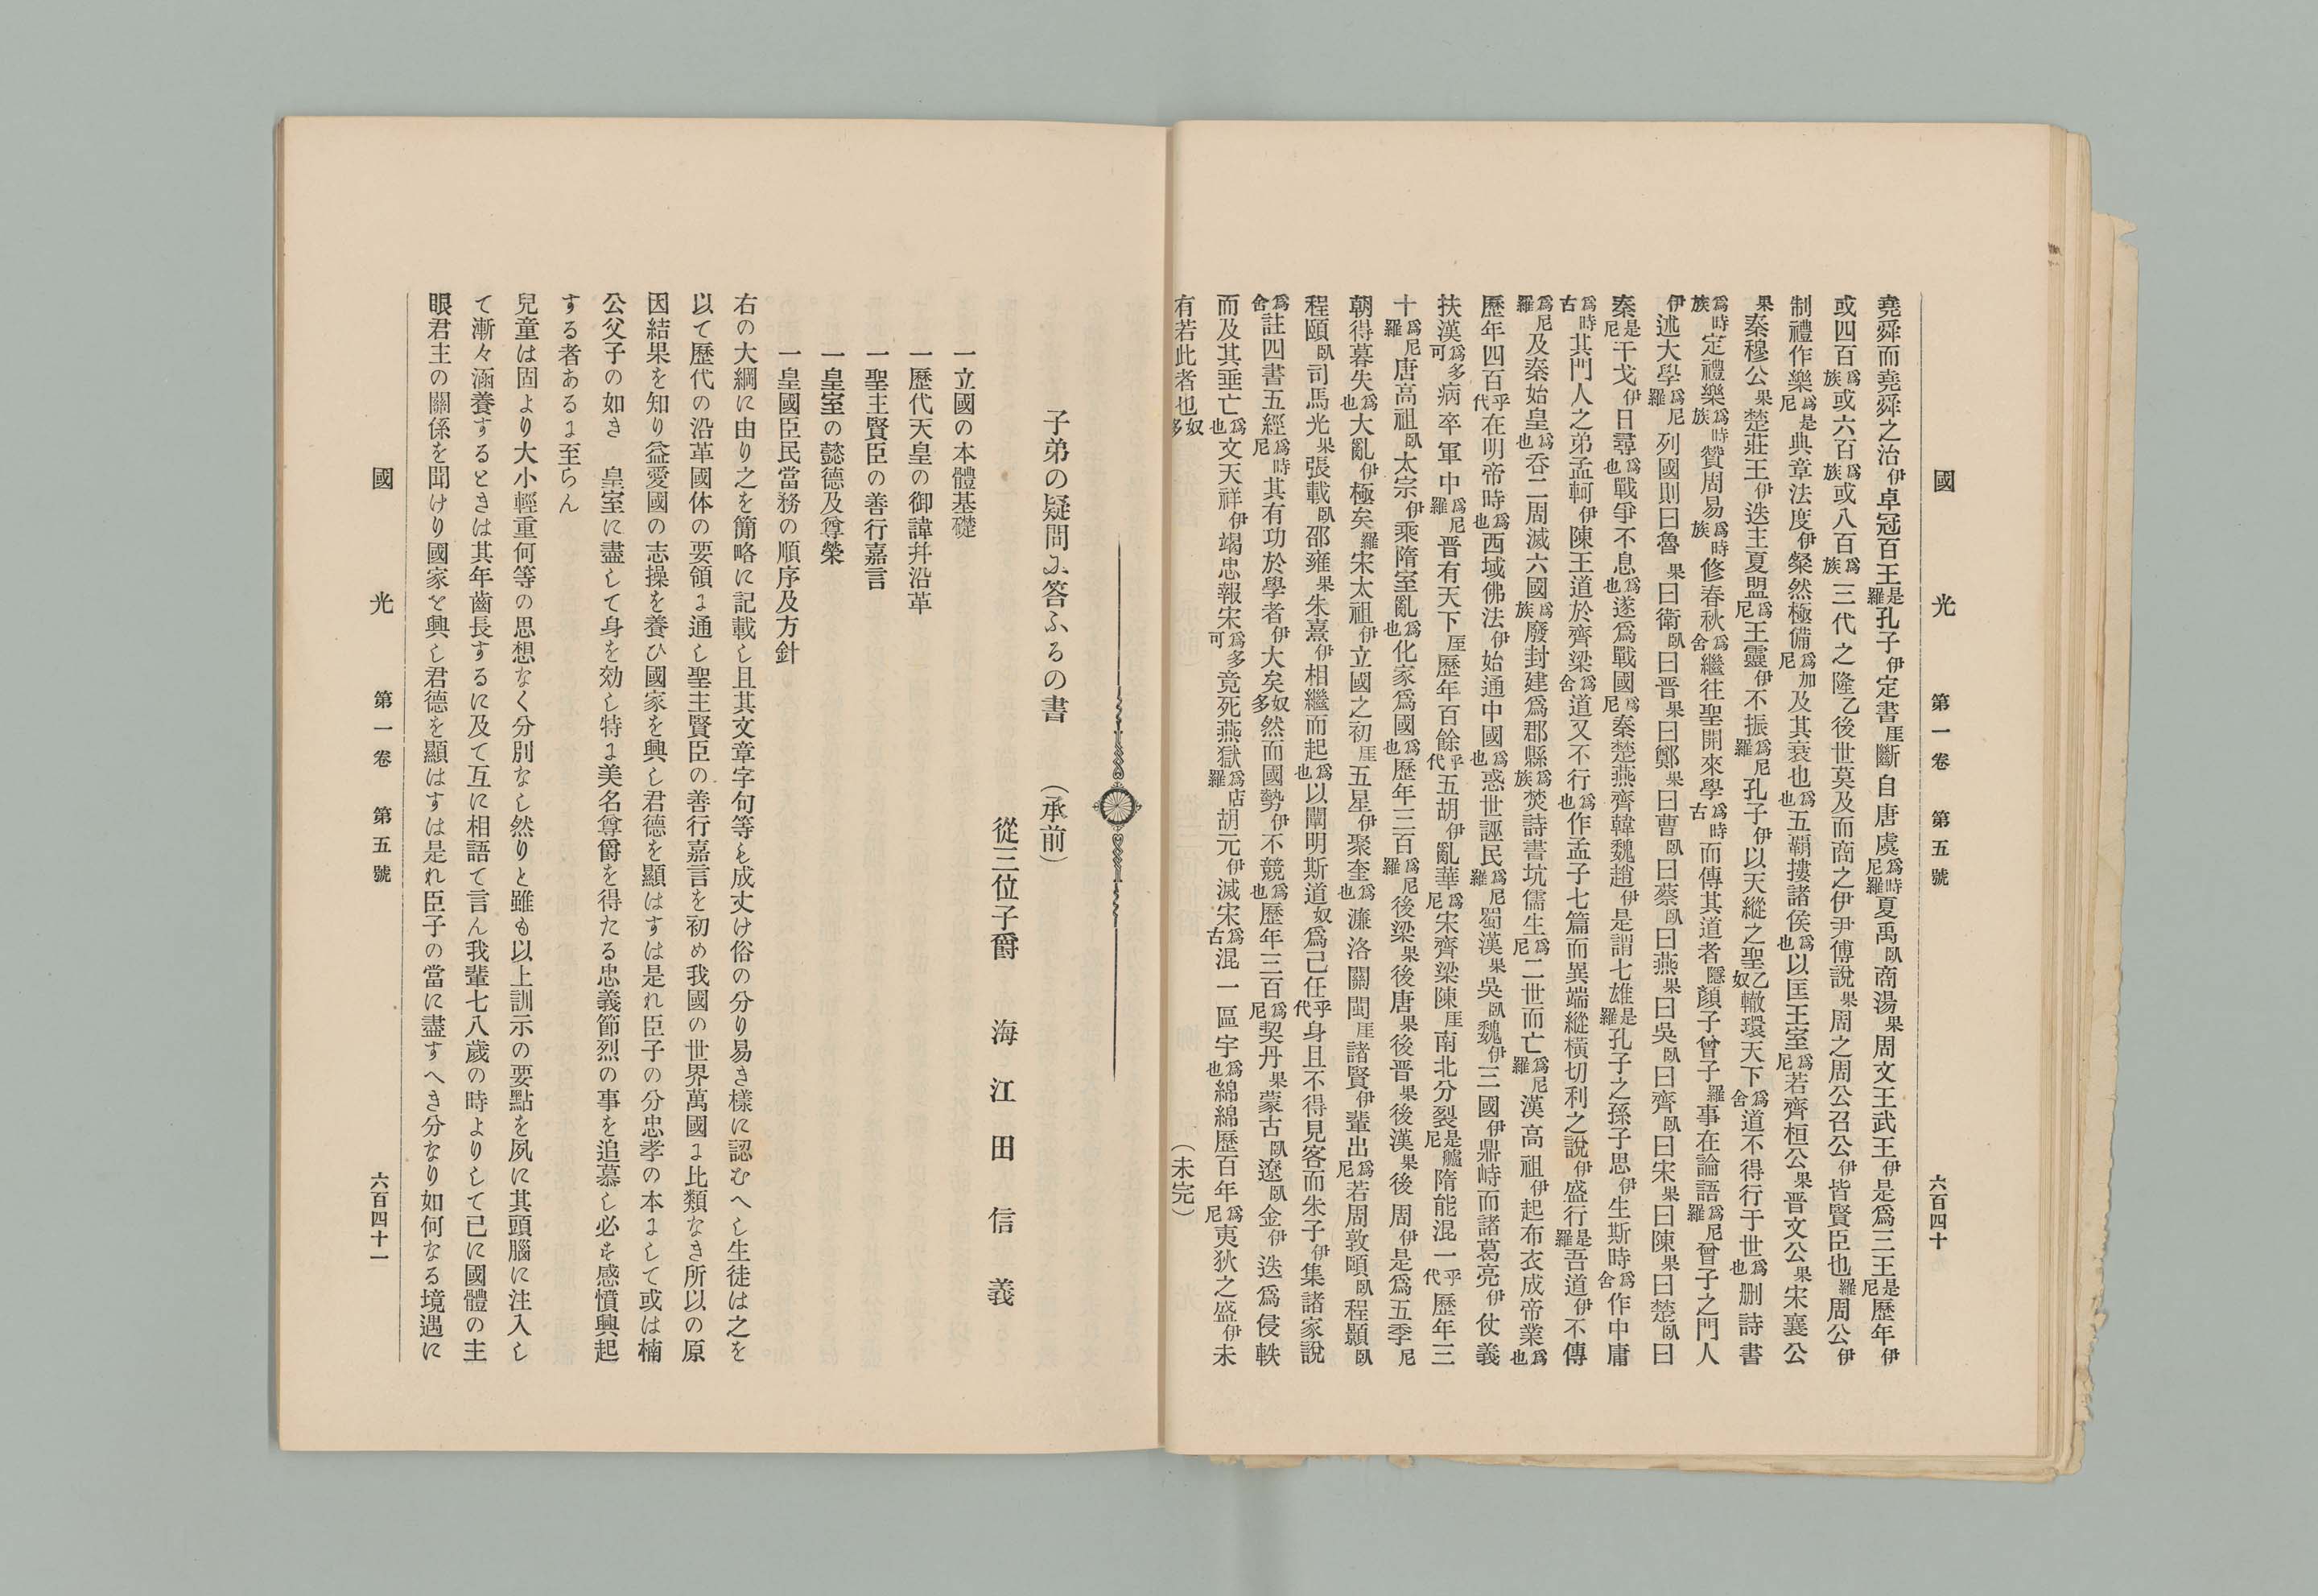 國光 第一卷 第五號 六百四十
堯舜而堯舜之治伊卓冠百王是羅孔子伊定書厓斷自唐虞爲時尼羅夏禹臥商湯果周文王武王伊是爲三王是尼歷年伊
或四百爲族或六百爲族或八百爲族三代之隆乙後世莫及而商之伊尹傅說果周之周公召公伊皆賢臣也羅周公伊
制禮作樂爲是尼典章法度伊粲然極備爲加尼及其衰也爲也五覇摟諸侯爲也以匡王室爲尼若齊桓公果晋文公果宋襄公
果秦穆公果楚莊王伊迭主夏盟爲尼王靈伊不振爲尼羅孔子伊以天縱之聖乙奴轍環天下爲舍道不得行于世爲也刪詩書
爲時族定禮樂爲時族贊周易爲時族修春秋爲舍繼往聖開來學爲時古而傳其道者隱顏子曾子羅事在論語爲尼羅曾子之門人
伊述大學爲尼羅列國則曰魯果曰衛臥曰晋果曰鄭果曰曹臥曰蔡臥曰燕果曰吳臥曰齊臥曰宋果曰陳果曰楚臥曰
秦是尼干戈伊日尋爲也戰爭不息爲也遂爲戰國爲尼秦楚燕齊韓魏趙伊是謂七雄是羅孔子之孫子思伊生斯時爲舍作中庸
爲時古其門人之弟孟軻伊陳王道於齊梁爲舍道又不行爲也作孟子七篇而異端縱橫切利之說伊盛行是羅吾道伊不傳
爲尼羅及秦始皇爲也呑二周滅六國爲族廢封建爲郡縣爲族焚詩書坑儒生爲尼二世而亡爲尼羅漢高祖伊起布衣成帝業爲也
歷年四百乎代在明帝時爲也西域佛法伊始通中國爲也惑世誣民爲尼羅蜀漢果吳臥魏伊三國伊鼎峙而諸葛亮伊仗義
扶漢爲多可病卒軍中爲尼羅晋有天下厓歷年百餘乎代五胡伊亂華爲尼宋齊梁陳厓南北分裂是艫尼隋能混一乎代歷年三
十爲尼羅唐高祖臥太宗伊乘隋室亂爲也化家爲國爲也歷年三百爲尼羅後梁果後唐果後晋果後漢果後周伊是爲五季尼
朝得暮失爲也大亂伊極矣羅宋太祖伊立國之初厓五星伊聚奎爲也濂洛關閩厓諸賢伊輩出爲尼若周敦頤臥程顥臥
程頤臥司馬光果張載臥邵雍果朱熹伊相繼而起爲也以闡明斯道奴爲己任乎代身且不得見客而朱子伊集諸家說
爲舍註四書五經爲時尼其有功於學者伊大矣奴多然而國勢伊不競爲也歷年三百爲尼契丹果蒙古臥遼臥金伊迭爲侵軼
而及其垂亡爲也文天祥伊竭忠報宋爲多可竟死燕獄爲店羅胡元伊滅宋爲古混一區宇爲也綿綿歷百年爲尼夷狄之盛伊未
有若此者也奴多 （未完）
子弟の疑問に答ふるの書 （承前）
從三位子爵 海江田信義
一立國の本體基礎
一歷代天皇の御諱幷沿革
一聖主賢臣の善行嘉言
一皇室の懿德及尊榮
一皇國臣民當務の順序及方針
右の大綱に由り之を簡略に記載し且其文章字句等も成丈け俗の分り易き樣に認むへし生徒は之を
以て歷代の沿革國体の要領に通し聖主賢臣の善行嘉言を初め我國の世界萬國に比類なき所以の原
因結果を知り益愛國の志操を養ひ國家を興し君德を顯はすは是れ臣子の分忠孝の本にして或は楠
公父子の如き 皇室に盡して身を効し特に美名尊爵を得たる忠義節烈の事を追慕し必を感憤興起
する者あるに至らん
兒童は固より大小輕重何等の思想なく分別なし然りと雖も以上訓示の要點を夙に其頭腦に注入し
て漸々涵養するときは其年齒長するに及て互に相語て言ん我輩七八歲の時よりして已に國體の主
眼君主の關係を聞けり國家を興し君德を顯はすは是れ臣子の當に盡すへき分なり如何なる境遇に
國光 第一卷 第五號 六百四十一